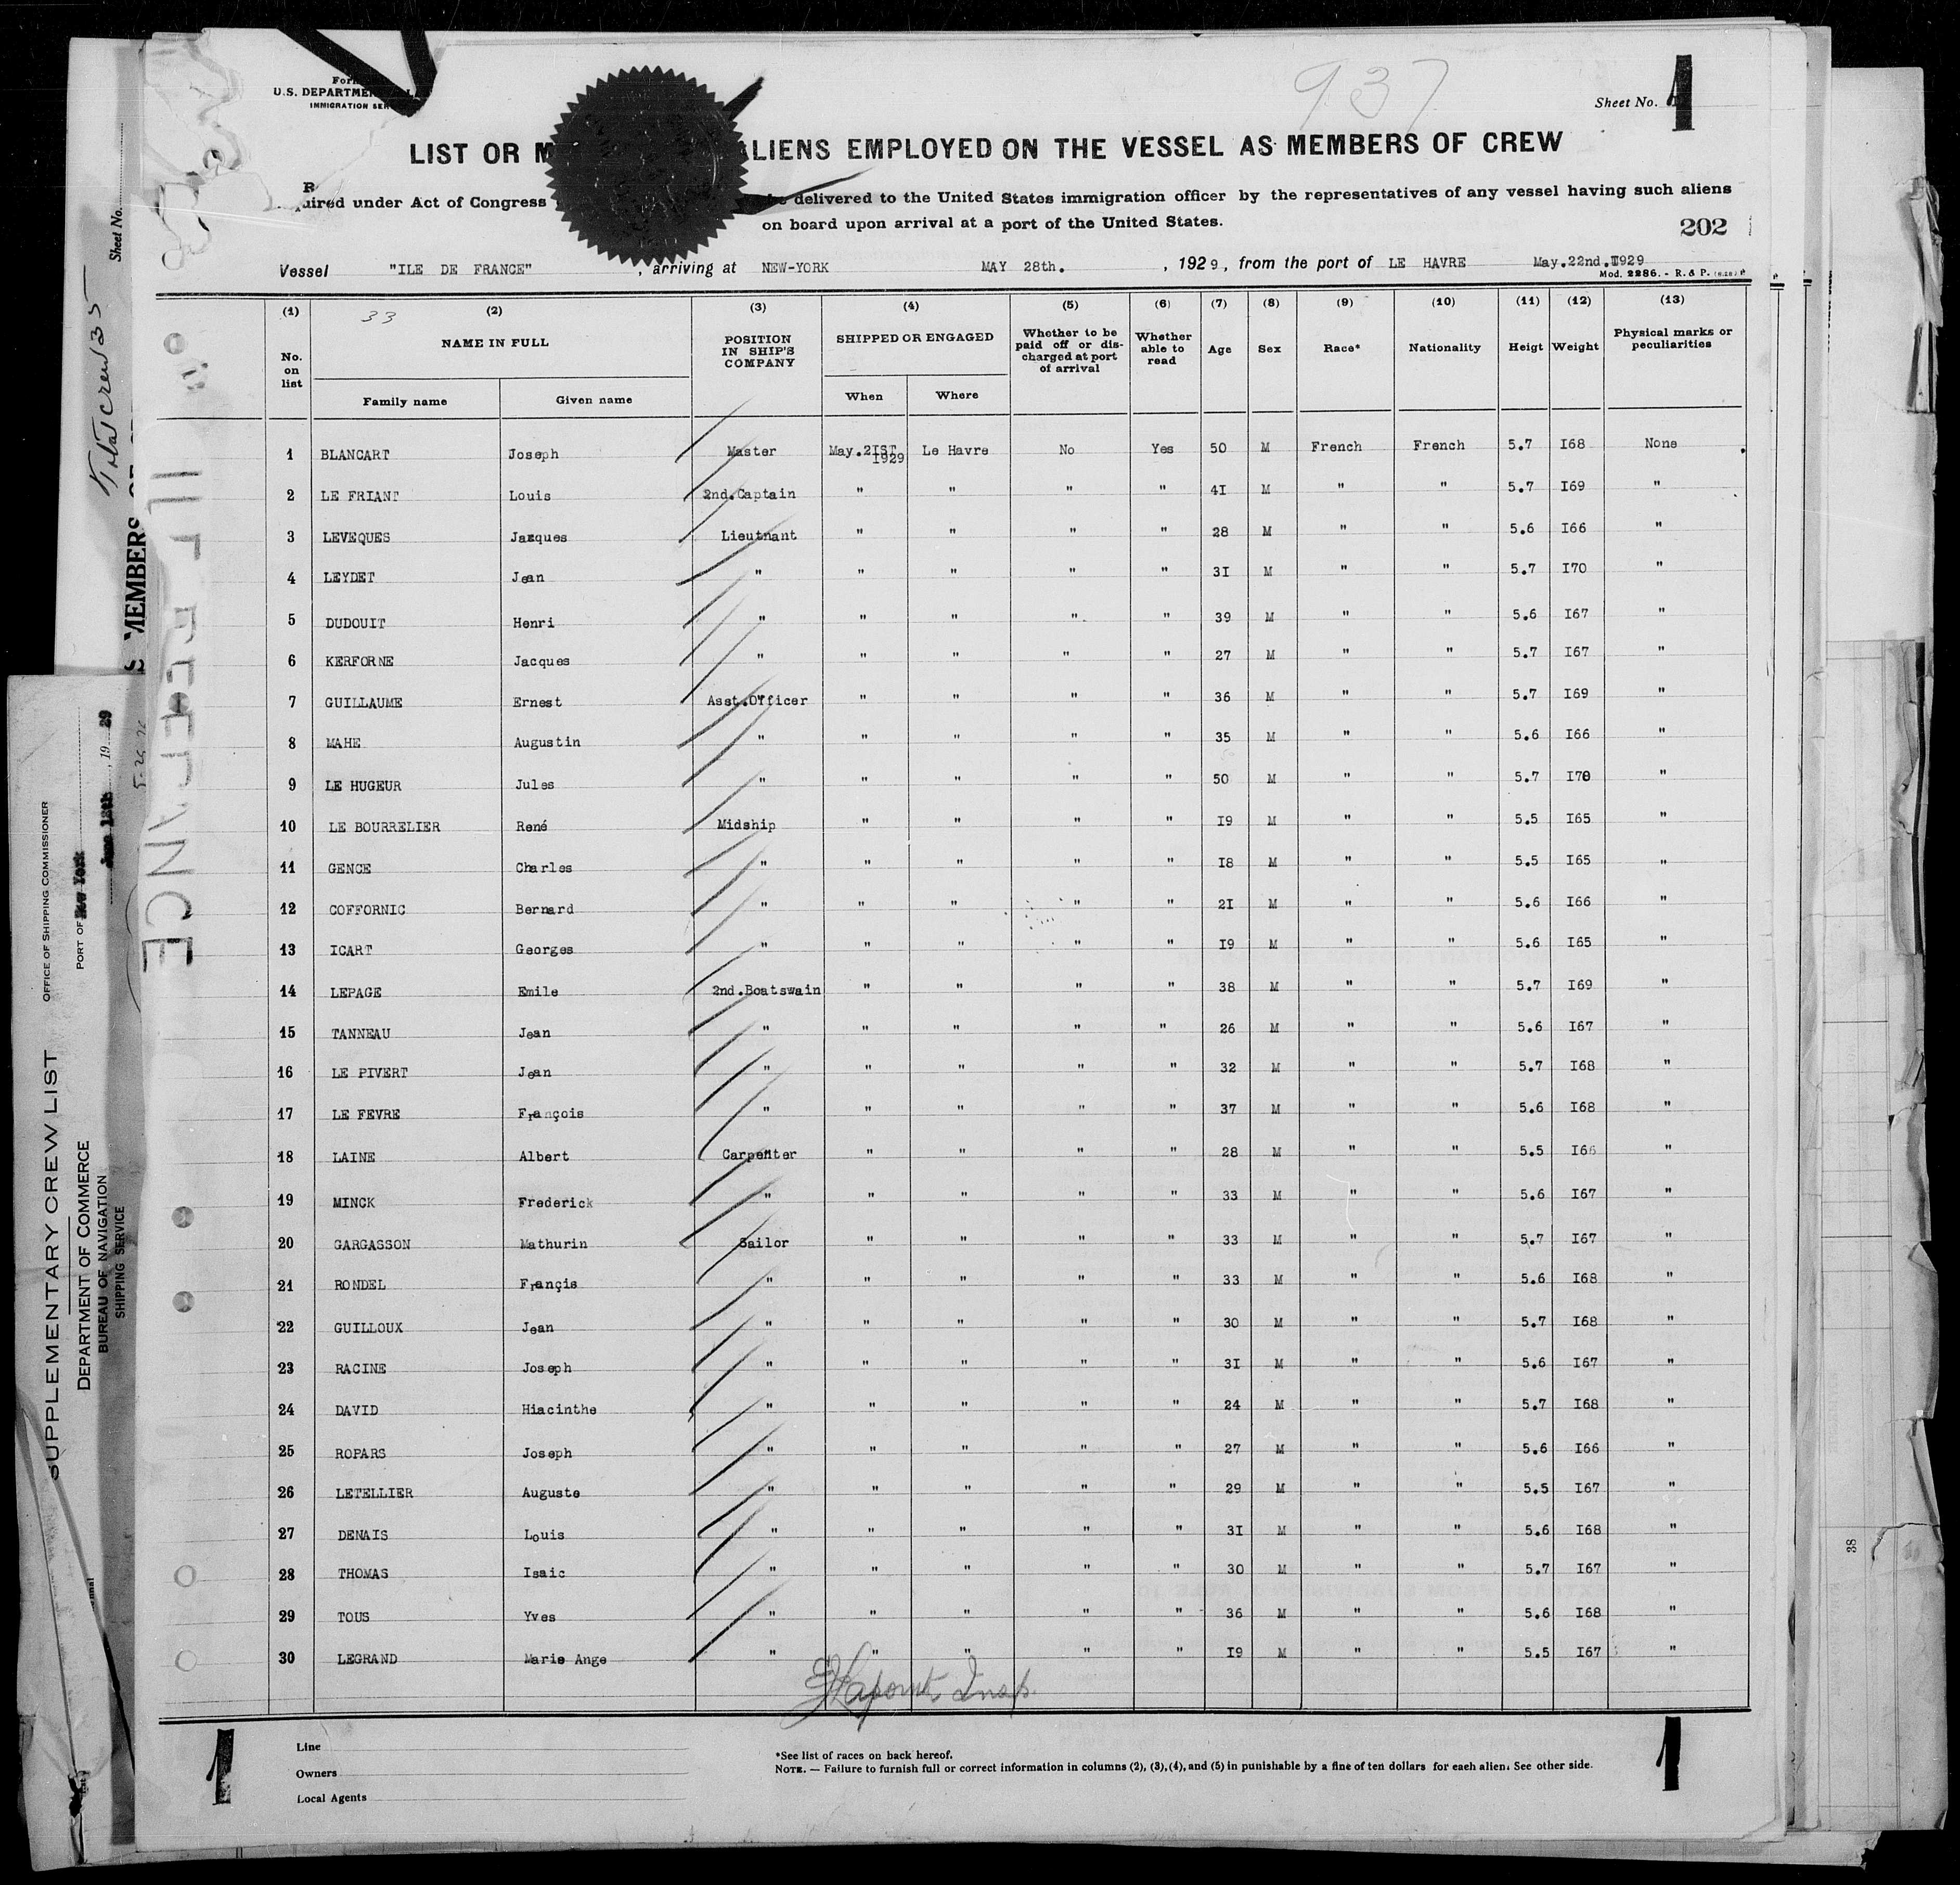 937
Sheet No. 1
1
U.S. DEPARTME
IMMIGRATION SER
LIST OR M ALIENS EMPLOYED ON THE VESSEL AS MEMBERS OF CREW
R uired under Act of Congress be delivered to the United States immigration officer by the representatives of any vessel having such aliens
on board upon arrival at a port of the United States.
202
Vessel "ILE DE FRANCE" , arriving at NEW-YORK MAY 28th. , 1929, from the port of LE HAVRE May.22nd.I929
Mod. 2286. - R. & P.
(1) (2) (3) (4) (5) (6) (7) (8) (9) (10) (11) (12) (13)
33
No. on list NAME IN FULL POSITION IN SHIP'S COMPANY SHIPPED OR ENGAGED Whether to be paid off or discharged at port of arrival Whether able to read Age Sex Race* Nationality Heigt Weight Physical marks or peculiarities
Family name Given name When Where
1 BLANCART Joseph Master May.2IST I929 Le Havre No Yes 50 M French French 5.7 I68 None
2 LE FRIANT Louis 2nd.Captain " " " " 4I M " " 5.7 I69 "
3 LEVEQUES Jacques Lieutnant " " " " 28 M " " 5.6 I66 "
4 LEYDET Jean " " " " " 3I M " " 5.7 I70 "
5 DUDOUIT Henri " " " " " 39 M " " 5.6 I67 "
6 KERFORNE Jacques " " " " " 27 M " " 5.7 I67 "
7 GUILLAUME Ernest Asst.Officer " " " " 36 M " " 5.7 I69 "
8 MAHE Augustin " " " " " 35 M " " 5.6 I66 "
9 LE HUGEUR Jules " " " " " 50 M " " 5.7 I70 "
10 LE BOURRELIER René Midship " " " " I9 M " " 5.5 I65 "
11 GENCE Charles " " " " " I8 M " " 5.5 I65 "
12 COFFORNIC Bernard " " " " " 2I M " " 5.6 I66 "
13 ICART Georges " " " " " I9 M " " 5.6 I65 "
14 LEPAGE Emile 2nd.Boatswain " " " " 38 M " " 5.7 I69 "
15 TANNEAU Jean " " " " " 26 M " " 5.6 I67 "
16 LE PIVERT Jean " " " " " 32 M " " 5.7 I68 "
17 LE FEVRE François " " " " " 37 M " " 5.6 I68 "
18 LAINE Albert Carpenter " " " " 28 M " " 5.5 I66 "
19 MINCK Frederick " " " " " 33 M " " 5.6 I67 "
20 GARGASSON Mathurin Sailor " " " " 33 M " " 5.7 I67 "
21 RONDEL Françis " " " " " 33 M " " 5.6 I68 "
22 GUILLOUX Jean " " " " " 30 M " " 5.7 I68 "
23 RACINE Joseph " " " " " 3I M " " 5.6 I67 "
24 DAVID Hiacinthe " " " " " 24 M " " 5.7 I68 "
25 ROPARS Joseph " " " " " 27 M " " 5.6 I66 "
26 LETELLIER Auguste " " " " " 29 M " " 5.5 I67 "
27 DENAIS Louis " " " " " 3I M " " 5.6 I68 "
28 THOMAS Isaic " " " " " 30 M " " 5.7 I67 "
29 TOUS Yves " " " " " 36 M " " 5.6 I68 "
30 LEGRAND Marie Ange " " " " " I9 M " " 5.5 I67 "
Insp.
1
1
Line
Owners
Local Agents
*See list of races on back hereof.
NOTE. — Failure to furnish full or correct information in columns (2), (3), (4), and (5) in punishable by a fine of ten dollars for each alien. See other side.
Sheet No.
Total crew 35
MEMBERS
ILE DE FRANCE
SUPPLEMENTARY CREW LIST
DEPARTMENT OF COMMERCE
BUREAU OF NAVIGATION
SHIPPING SERVICE
OFFICE OF SHIPPING COMMISSIONER
PORT OF New York
, 19 29
38